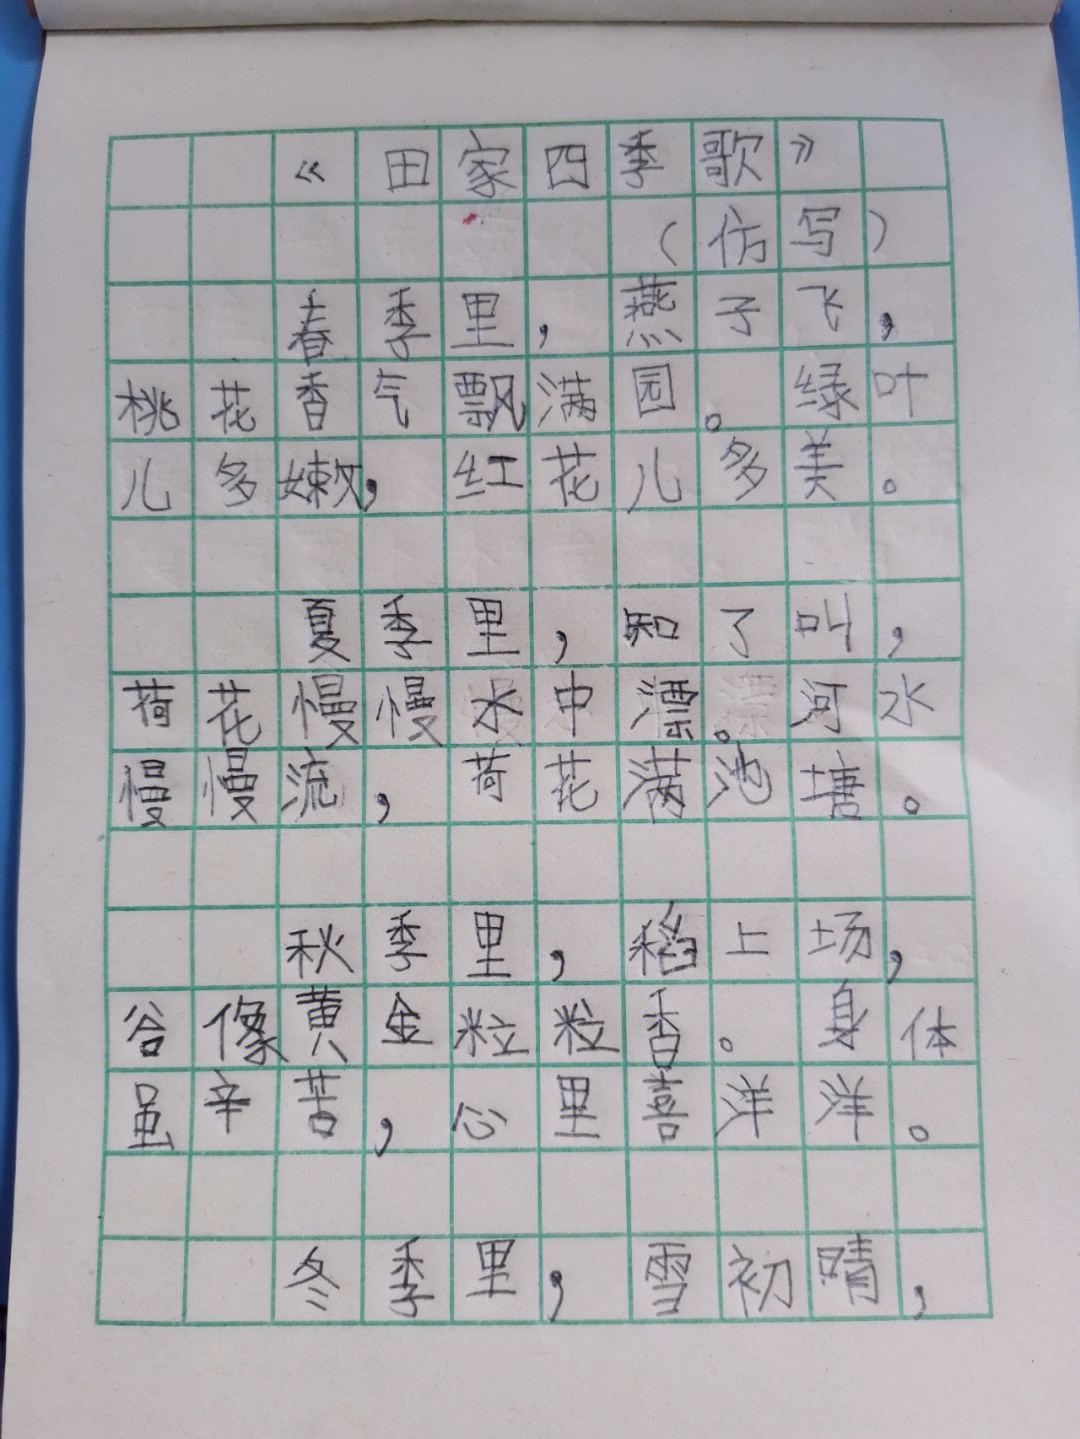 《田家四季歌》
（仿写）
春季里，燕子飞，
桃花香气飘满园。绿叶
儿多嫩，红花儿多美。
夏季里，知了叫，
荷花慢慢水中漂。河水
慢慢流，荷花满池塘。
秋季里，稻上场，
谷像黄金粒粒香。身体
虽辛苦，心里喜洋洋。
冬季里，雪初晴，